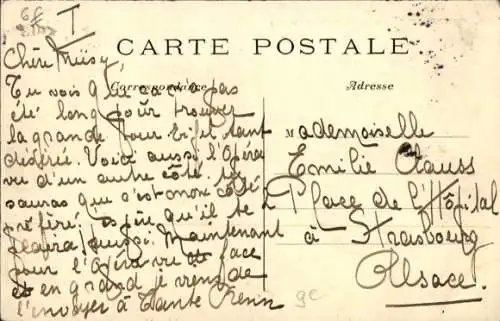 I
CARTE POSTALE
Correspondance
Adresse
Chère Missy,
Tu vois que ça n'a pas
été long pour trouver
la grande Tour Eiffel tant
désirée. Voici aussi l'Opéra
vu d'un autre côté. tu
sauras que c'est mon côté
préféré, espère qu'il te
plaira aussi. Maintenant
pour l'Opéra vu de face
et en grand je viens de
l'envoyer à Tante
Mademoiselle
Emilie Clauss
1 Place de l'Hôpital
à Strasbourg
Alsace.